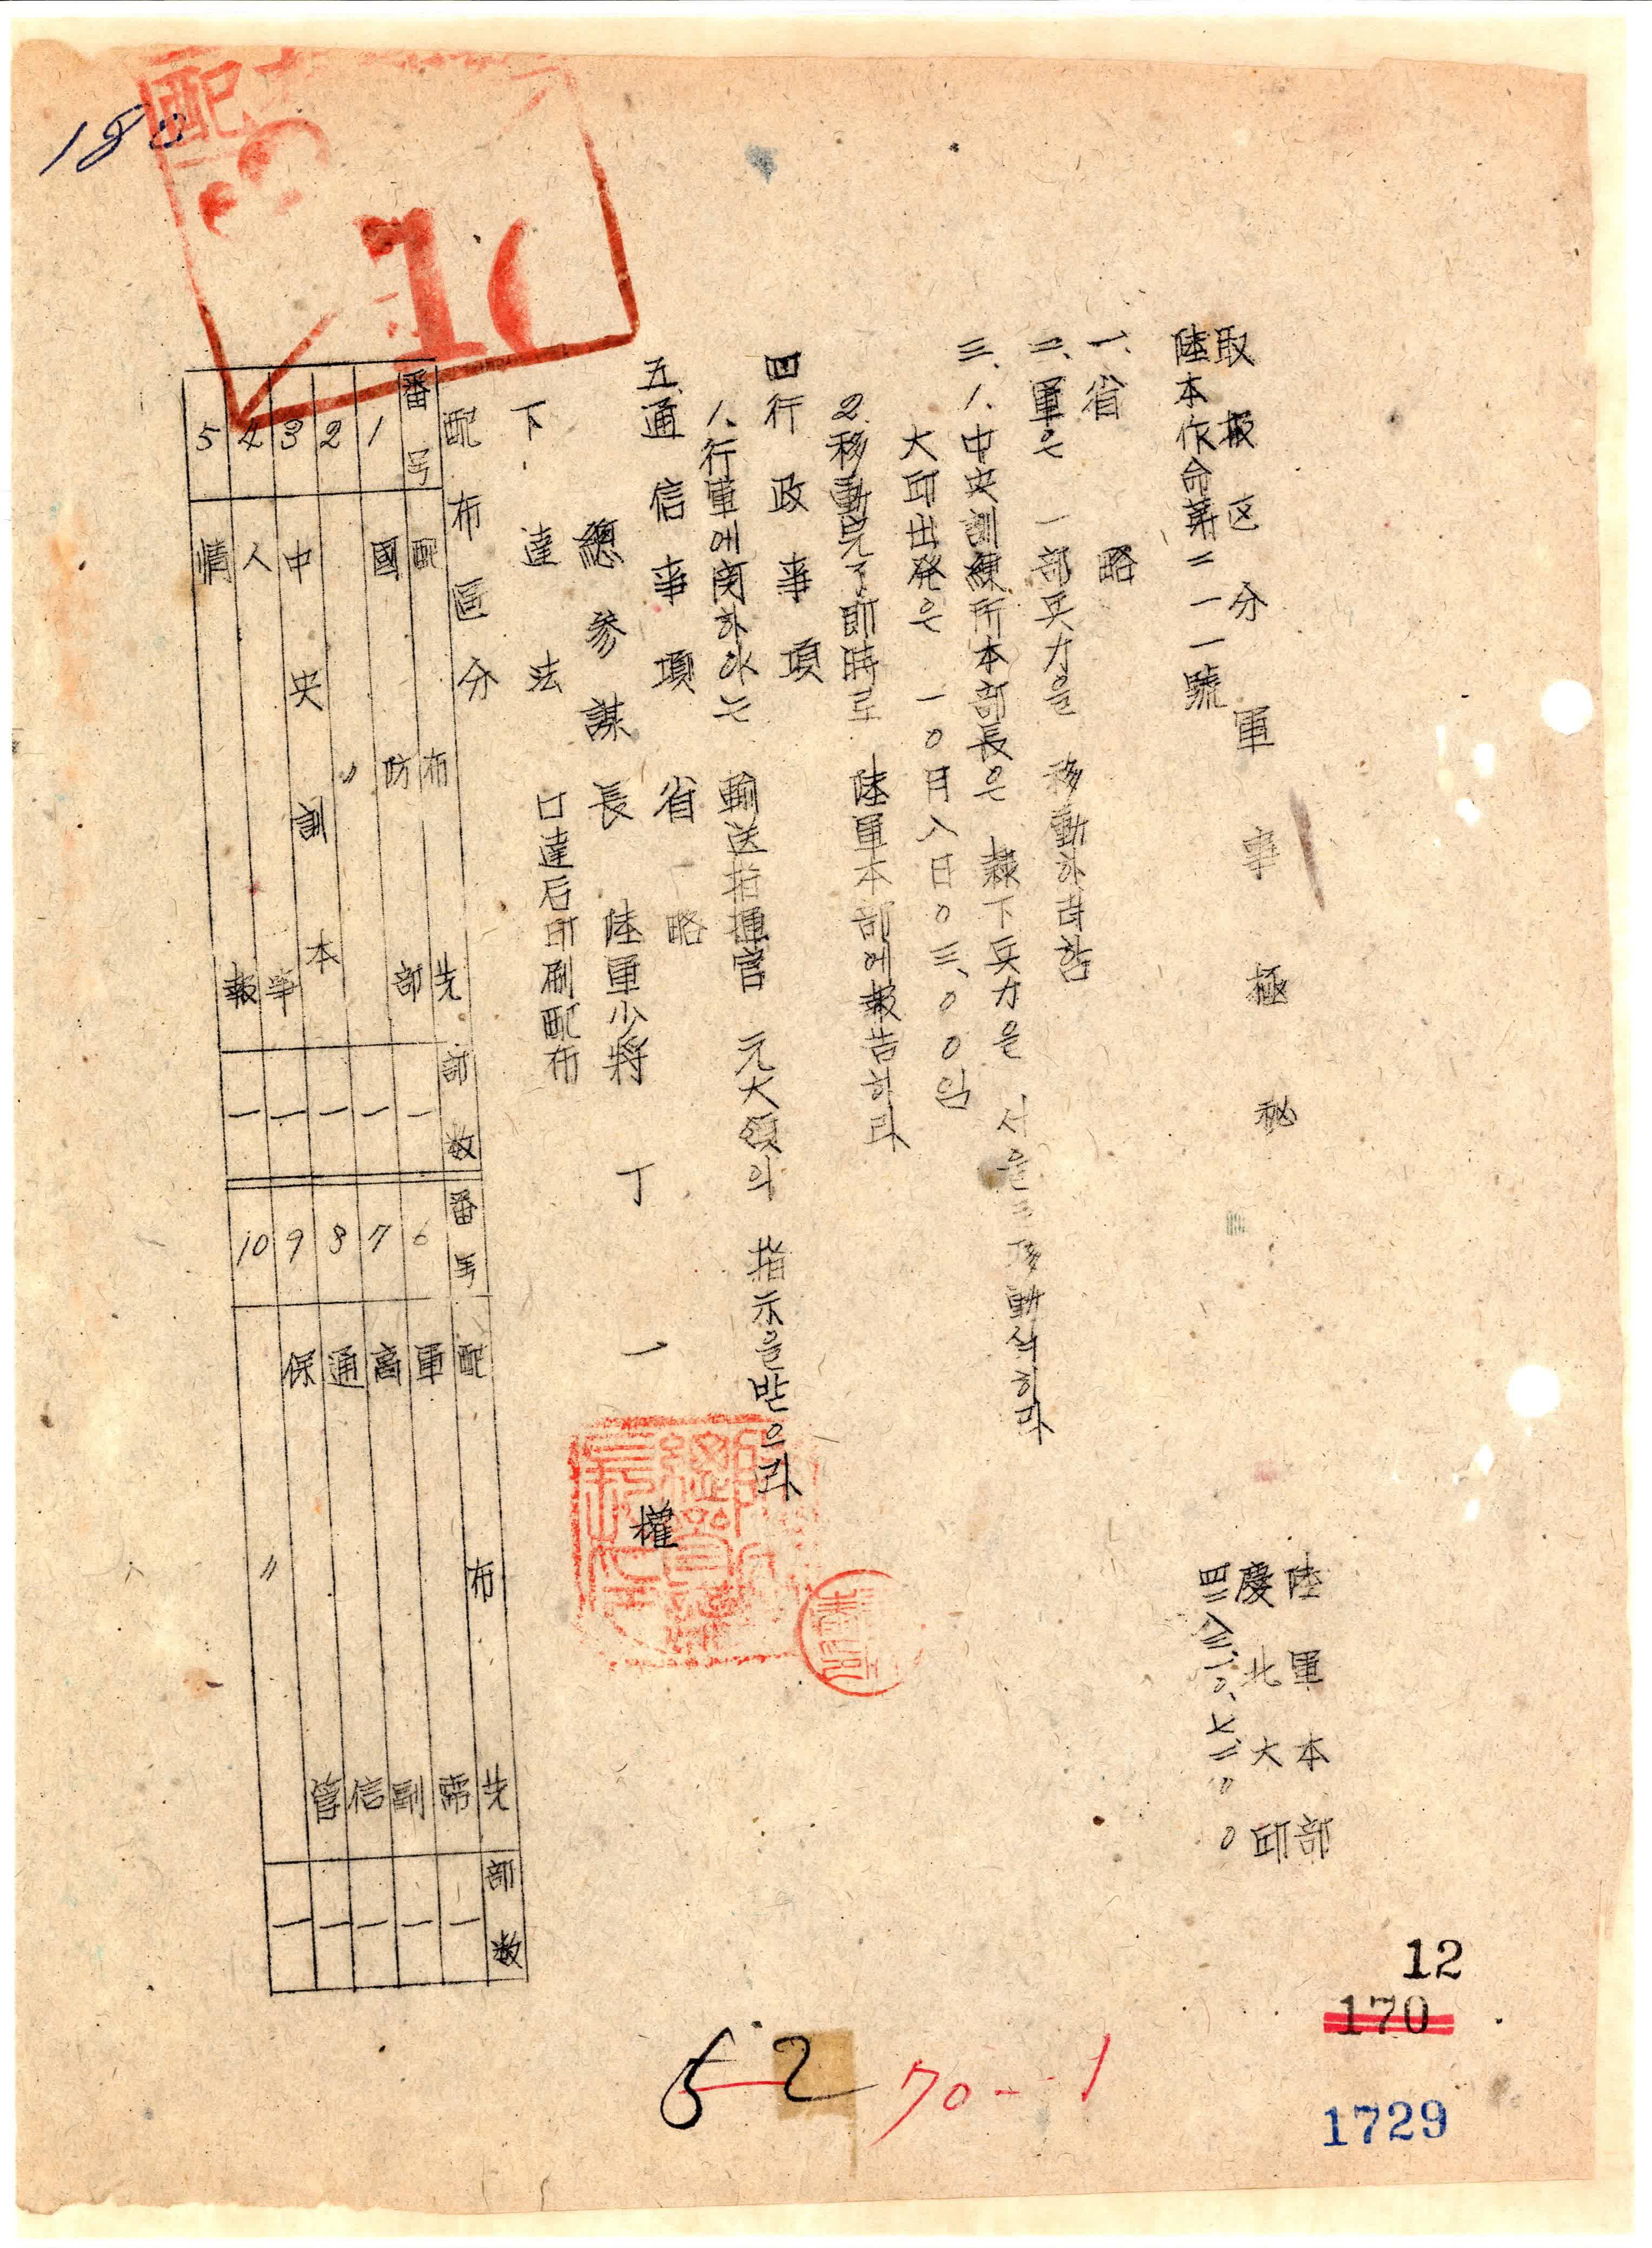 取扱区分 軍事極秘
陸軍本部
慶北大邱
四二八三.一〇.七.二〇〇
陸本作命第二一一號
一、省略
二、軍은 一部兵力을 移動하려함
三、1.中央訓練所本部長은 隷下兵力을 서울로移動식히라
大邱出発은 一〇月八日〇三、〇〇임
2.移動完了即時로 陸軍本部에報告하라
四 行政事項
1.行軍에関하야는 輸送指揮官 元大領의 指示을받으라
五、通信事項 省略
總參謀長 陸軍少將 丁一權
下達法 口達后印刷配布
配布區分
番号 配布先 部数 番号 配布先 部数
1 國防部 一 6 軍需 一
2 〃 一 7 高副 一
3 中央訓本 一 8 通信 一
4 人事 一 9 保管 一
5 情報 一 10 〃 一
配
10
12
170
1729
52
70--1